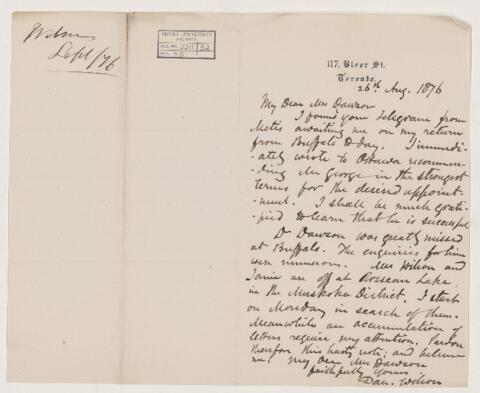 Wilson
Sept/76
McGILL UNIVERSITY
ARCHIVES
ACC. NO.
REF.
117, Bloor St.
Toronto.
26th Aug. 1876
My Dear Mrs Dawson
I found your telegram from
Metis awaiting me on my return
from Buffalo to day. I immedi-
ately wrote to Ottawa recommen-
ding Mr George in the strongest
terms for the desired appoint-
-ment. I shall be much grati-
-fied to learn that he is successful
Dr Dawson was greatly missed
at Buffalo. The enquiries for him
were numerous. Mrs Wilson and
Janie are off at Rosseau Lake,
in the Muskoka District. I start
on Monday in search of them.
Meanwhile an accumulation of
letters require my attention. Pardon
therefore this hasty note; and believe
me, My Dear Mrs Dawson
faithfully Yours
Dan. Wilson